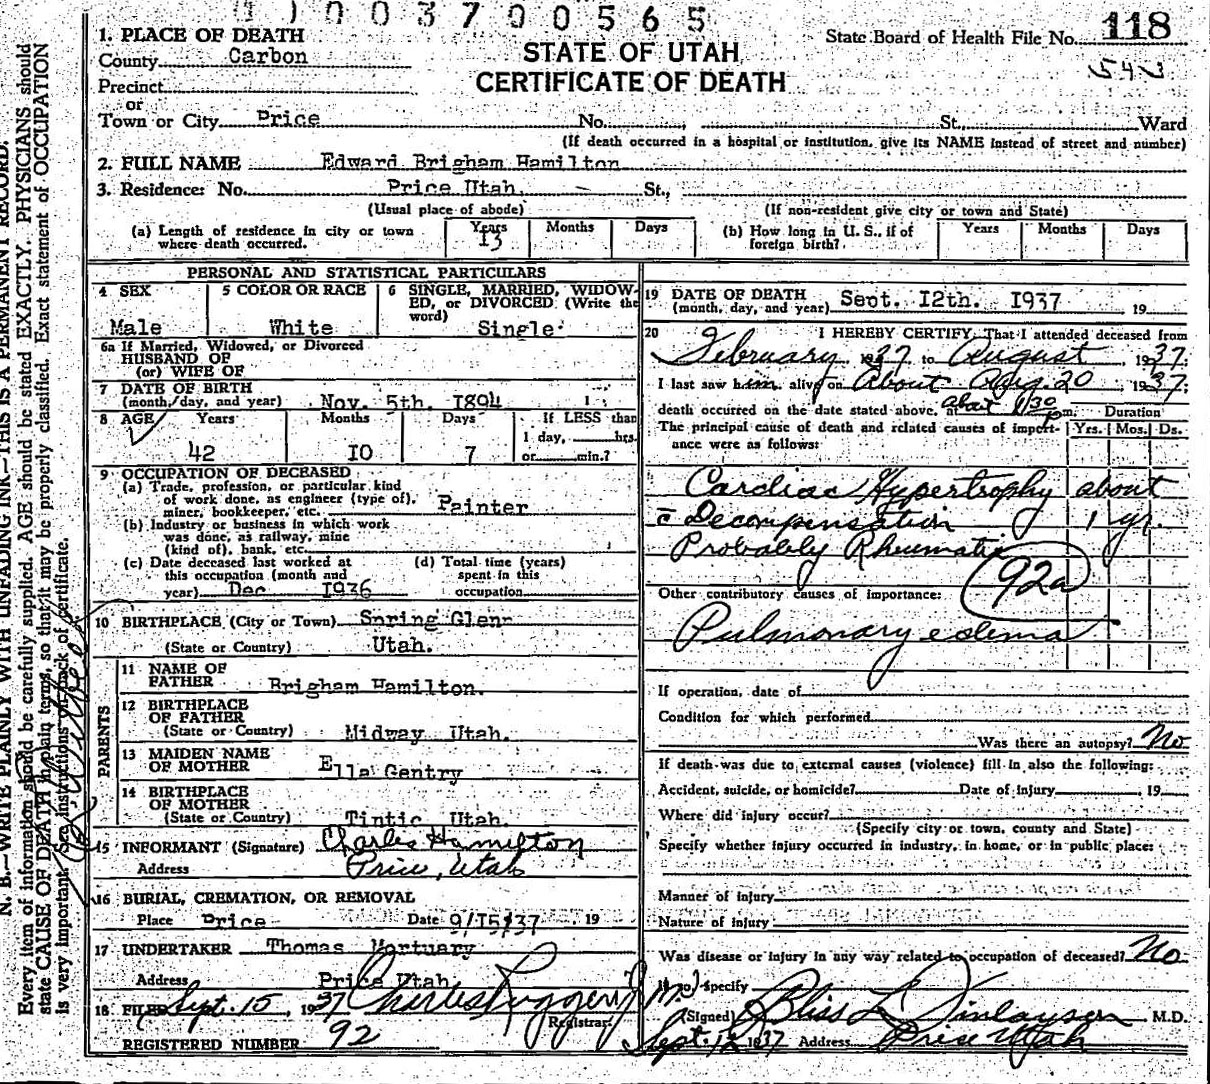 1003700565
State Board of Health File No. 118
543
STATE OF UTAH
CERTIFICATE OF DEATH
1. PLACE OF DEATH
County Carbon
Precinct
or
Town or City Price No. St. Ward
(If death occurred in a hospital or institution, give its NAME instead of street and number)
2. FULL NAME Edward Brigham Hamilton
3. Residence: No. Price Utah. St.,
(Usual place of abode) (If non-resident give city or town and State)
(a) Length of residence in city or town where death occurred. Years 13 Months Days
(b) How long in U. S., if of foreign birth? Years Months Days
PERSONAL AND STATISTICAL PARTICULARS
4 SEX Male
5 COLOR OR RACE White
6 SINGLE, MARRIED, WIDOWED, or DIVORCED (Write the word) Single
6a If Married, Widowed, or Divorced
HUSBAND OF
(or) WIFE OF
7 DATE OF BIRTH
(month, day, and year) Nov. 5th. 1894
8 AGE Years 42 Months 10 Days 7 If LESS than
1 day, hrs.
or min.?
9 OCCUPATION OF DECEASED
(a) Trade, profession, or particular kind
of work done, as engineer (type of),
miner, bookkeeper, etc. Painter
(b) Industry or business in which work
was done, as railway, mine
(kind of), bank, etc.
(c) Date deceased last worked at
this occupation (month and
year) Dec 1936
(d) Total time (years)
spent in this
occupation
10 BIRTHPLACE (City or Town) Spring Glen
(State or Country) Utah.
PARENTS
11 NAME OF
FATHER Brigham Hamilton.
12 BIRTHPLACE
OF FATHER
(State or Country) Midway Utah.
13 MAIDEN NAME
OF MOTHER Ella Gentry
14 BIRTHPLACE
OF MOTHER
(State or Country) Tintic Utah.
15 INFORMANT (Signature) Charles Hamilton
Address Price, Utah
16 BURIAL, CREMATION, OR REMOVAL
Place Price Date 9/15/37 19
17 UNDERTAKER Thomas Mortuary
Address Price Utah.
18 FILED Sept. 15, 1937 Charles Ruggeri
Registrar.
REGISTERED NUMBER 92
19 DATE OF DEATH
(month, day, and year) Sept. 12th. 1937 19
20 I HEREBY CERTIFY, That I attended deceased from
February 1937 to August 1937
I last saw him alive on About Aug. 20, 1937
death occurred on the date stated above, at about 1:30 p m. Duration
The principal cause of death and related causes of importance were as follows: Yrs. Mos. Ds.
Cardiac Hypertrophy about
c̄ Decompensation 1 yr.
Probably Rheumatic
92a
Other contributory causes of importance:
Pulmonary edema
If operation, date of
Condition for which performed
Was there an autopsy? No
If death was due to external causes (violence) fill in also the following:
Accident, suicide, or homicide? Date of injury 19
Where did injury occur?
(Specify city or town, county and State)
Specify whether injury occurred in industry, in home, or in public place:
Manner of injury
Nature of injury
Was disease or injury in any way related to occupation of deceased? No
If so, specify
(Signed) Bliss L Finlayson M.D.
Sept. 1937 Address Price Utah
N. B.—WRITE PLAINLY WITH UNFADING INK—THIS IS A PERMANENT RECORD.
Every item of information should be carefully supplied. AGE should be stated EXACTLY. PHYSICIANS should
state CAUSE OF DEATH in plain terms, so that it may be properly classified. Exact statement of OCCUPATION
is very important. See instructions on back of certificate.